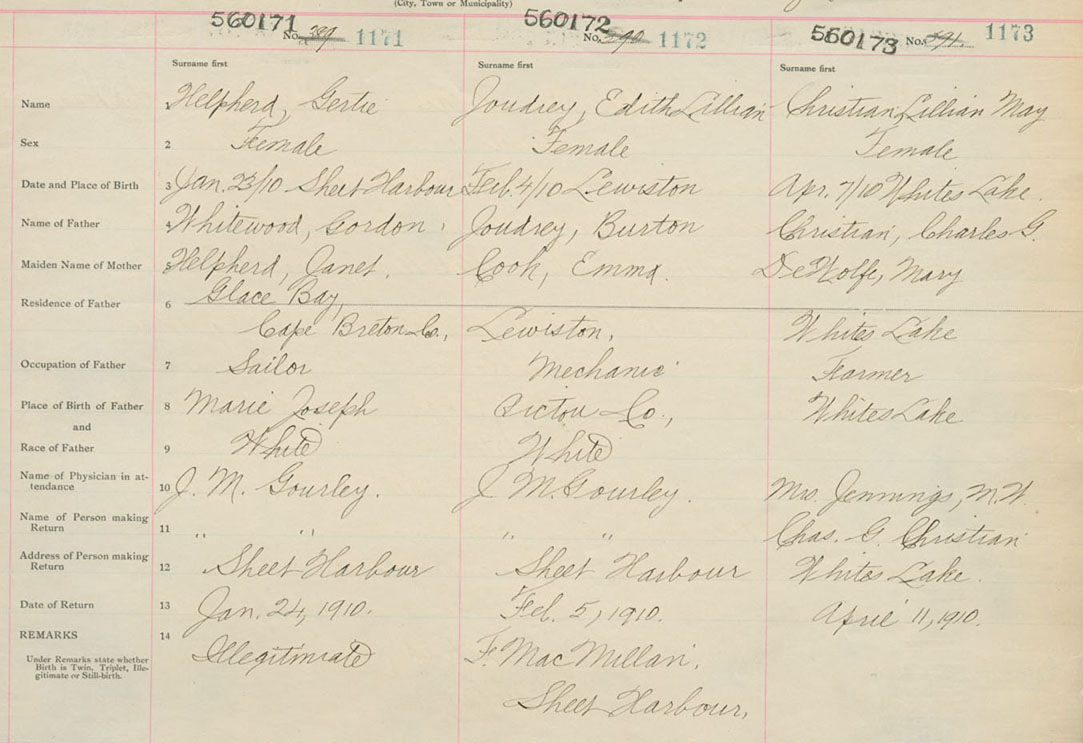 (City, Town or Municipality)
560171 560172 560173
No. 389 1171 No. 390 1172 No. 391. 1173
Surname first Surname first Surname first
Name 1 Helpherd, Gertie Joudrey, Edith Lillian Christian Lillian May
Sex 2 Female Female Female
Date and Place of Birth 3 Jan. 23/10 Sheet Harbour Feb. 4/10 Lewiston Apr. 7/10 Whites Lake.
Name of Father 4 Whitewood, Gordon. Joudrey, Burton Christian, Charles G.
Maiden Name of Mother 5 Helpherd, Janet. Cook, Emma. DeWolfe, Mary
Residence of Father 6 Glace Bay,
Cape Breton Co., Lewiston, Whites Lake
Occupation of Father 7 Sailor Mechanic Farmer
Place of Birth of Father 8 Marie Joseph Pictou Co., Whites Lake
and
Race of Father 9 White White
Name of Physician in at-
tendance 10 J. M. Gourley. J M. Gourley. Mrs Jennings, M.W.
Name of Person making
Return 11 " " " " Chas. G. Christian
Address of Person making
Return 12 Sheet Harbour Sheet Harbour Whites Lake.
Date of Return 13 Jan. 24, 1910. Feb. 5, 1910. April 11, 1910.
REMARKS 14 Illegitimate F. MacMillan,
Under Remarks state whether
Birth is Twin, Triplet, Ille-
gitimate or Still-birth.
Sheet Harbour,